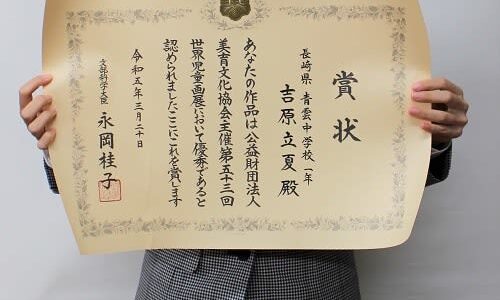 賞状
長崎県 青雲中学校一年
吉原立夏殿
あなたの作品は公益財団法人
美育文化協会主催第五十三回
世界児童画展において優秀であると
認められましたここにこれを賞します
令和五年三月二十日
文部科学大臣 永岡桂子